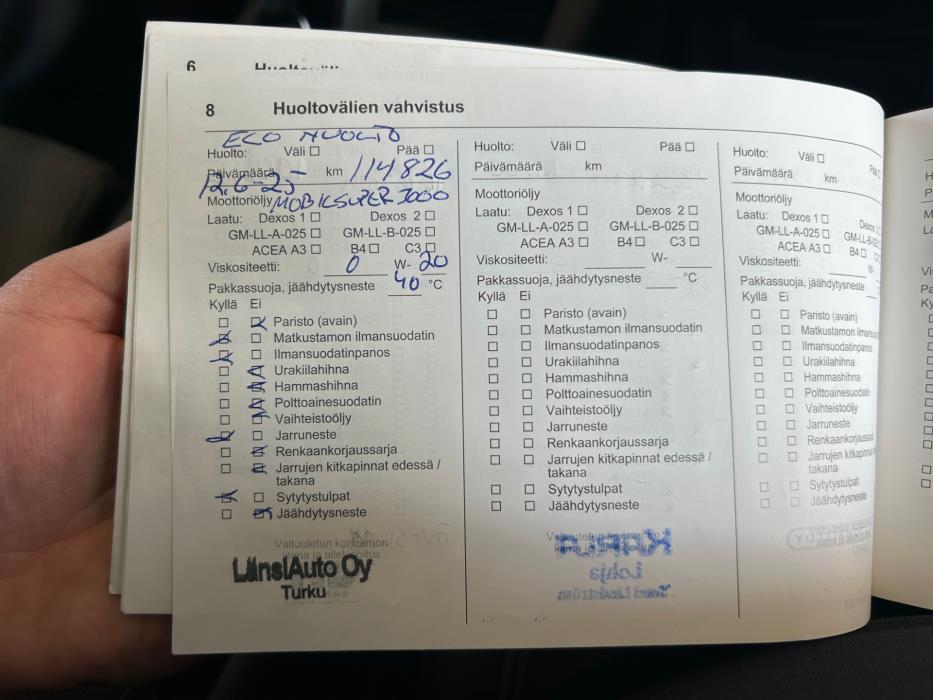 6
8 Huoltovälien vahvistus
ECO HUOLTO
Huolto: Väli ☐ Pää ☐
Päivämäärä 12.6-23 km 114826
Moottoriöljy MOBIL SUPER 3000
Laatu: Dexos 1 ☐ Dexos 2 ☐
GM-LL-A-025 ☐ GM-LL-B-025 ☐
ACEA A3 ☐ B4 ☐ C3 ☐
Viskositeetti: 0 W- 20
Pakkassuoja, jäähdytysneste 40 °C
Kyllä Ei
Paristo (avain)
Matkustamon ilmansuodatin
Ilmansuodatinpanos
Urakiilahihna
Hammashihna
Polttoainesuodatin
Vaihteistoöljy
Jarruneste
Renkaankorjaussarja
Jarrujen kitkapinnat edessä /
takana
Sytytystulpat
Jäähdytysneste
Valtuutetun korjaamon
leima ja allekirjoitus
LänsiAuto Oy
Turku
Huolto: Väli ☐ Pää ☐
Päivämäärä km
Moottoriöljy
Laatu: Dexos 1 ☐ Dexos 2 ☐
GM-LL-A-025 ☐ GM-LL-B-025 ☐
ACEA A3 ☐ B4 ☐ C3 ☐
Viskositeetti: W-
Pakkassuoja, jäähdytysneste °C
Kyllä Ei
Paristo (avain)
Matkustamon ilmansuodatin
Ilmansuodatinpanos
Urakiilahihna
Hammashihna
Polttoainesuodatin
Vaihteistoöljy
Jarruneste
Renkaankorjaussarja
Jarrujen kitkapinnat edessä /
takana
Sytytystulpat
Jäähdytysneste
Huolto: Väli ☐ Pää ☐
Päivämäärä km
Moottoriöljy
Laatu: Dexos 1 ☐
GM-LL-A-025 ☐
ACEA A3 ☐ B4 ☐
Viskositeetti: W-
Pakkassuoja, jäähdytysneste
Kyllä Ei
Paristo (avain)
Matkustamon
Ilmansuodatinpanos
Urakiilahihna
Hammashihna
Polttoainesuodatin
Vaihteistoöljy
Jarruneste
Renkaankorjaussarja
Jarrujen kitkapinnat
takana
Sytytystulpat
Jäähdytysneste